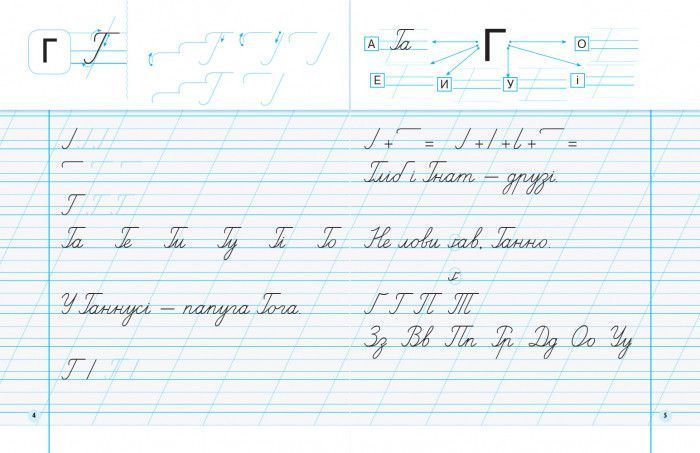 Г Г
А Га Г О
Е И У і
Г Г Г
Га Ге Ги Гу Гі Го
У Ганнусі — папуга Гога.
Г
4
+ = + + + =
Гліб і Гнат — друзі.
Не лови гав, Ганно.
г
Ґ Г П Т
Зз Вв Пп Рр Дд Оо Уу
5